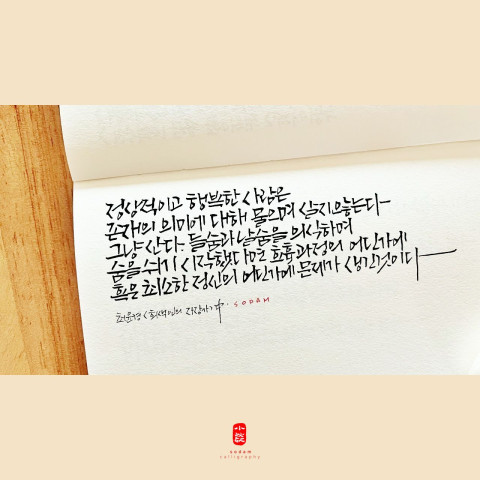 정상적이고 행복한 사람은
존재의 의미에 대해 물으며 살지 않는다
그냥 산다. 들숨과 날숨을 의식하며
숨을 쉬기 시작했다면 호흡과정의 어딘가에
혹은 최소한 정신의 어딘가에 문제가 생긴것이다
최윤경 <회색인의 자장가> 中. SODAM
sodam
calligraphy